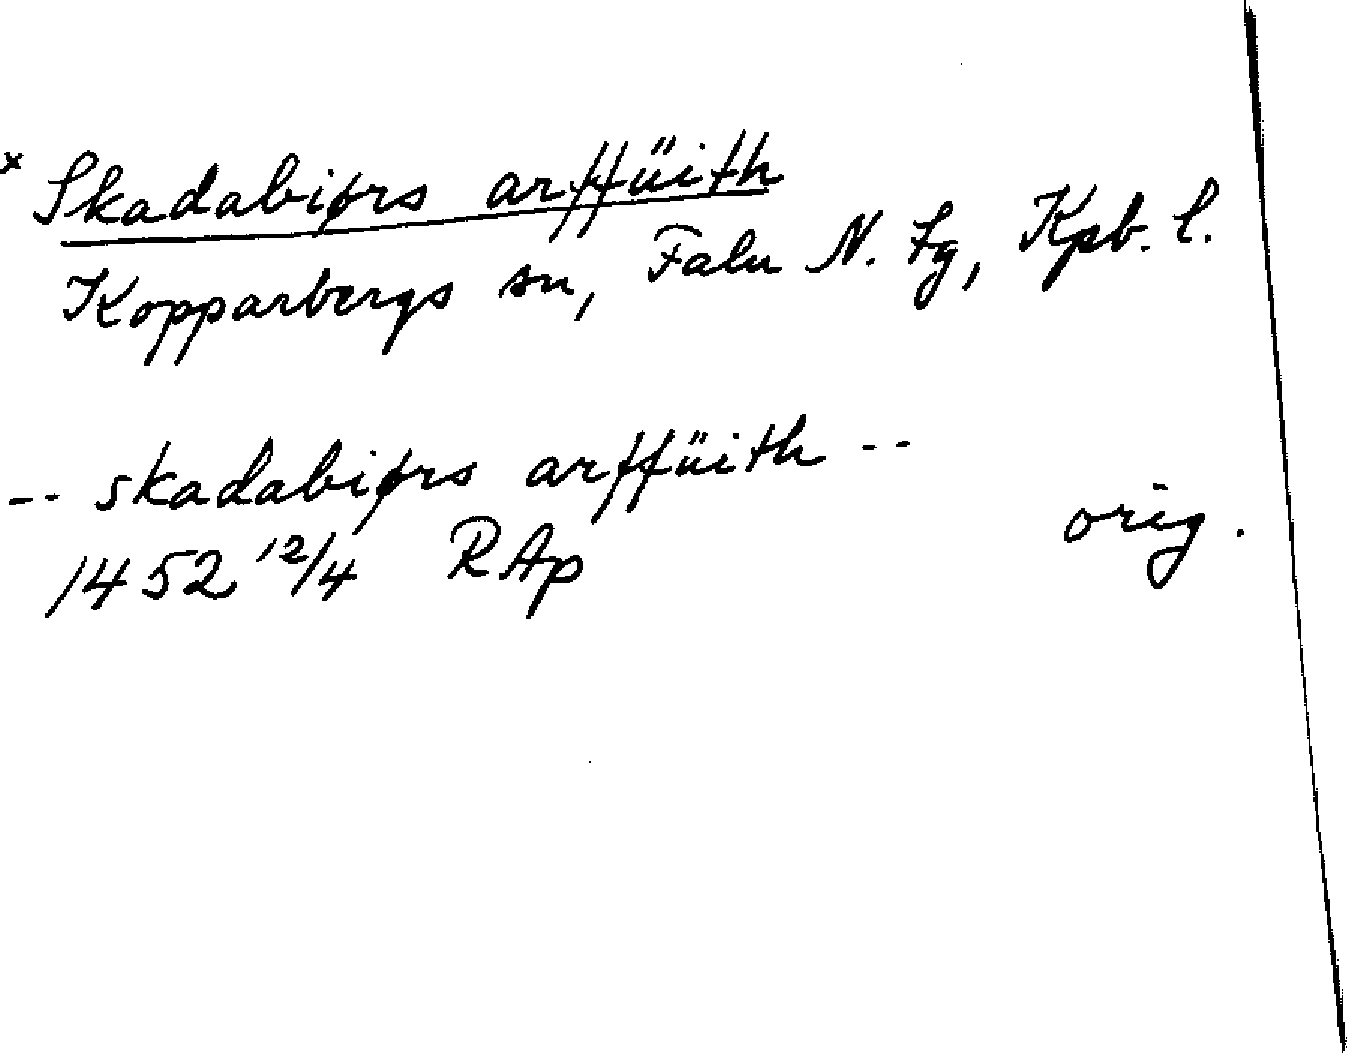 × Skadabiørs arffüith
Kopparbergs sn, Falu N. Fg, Kpb. l.
-- skadabiørs arffüith --
1452 12/4 RAp orig.